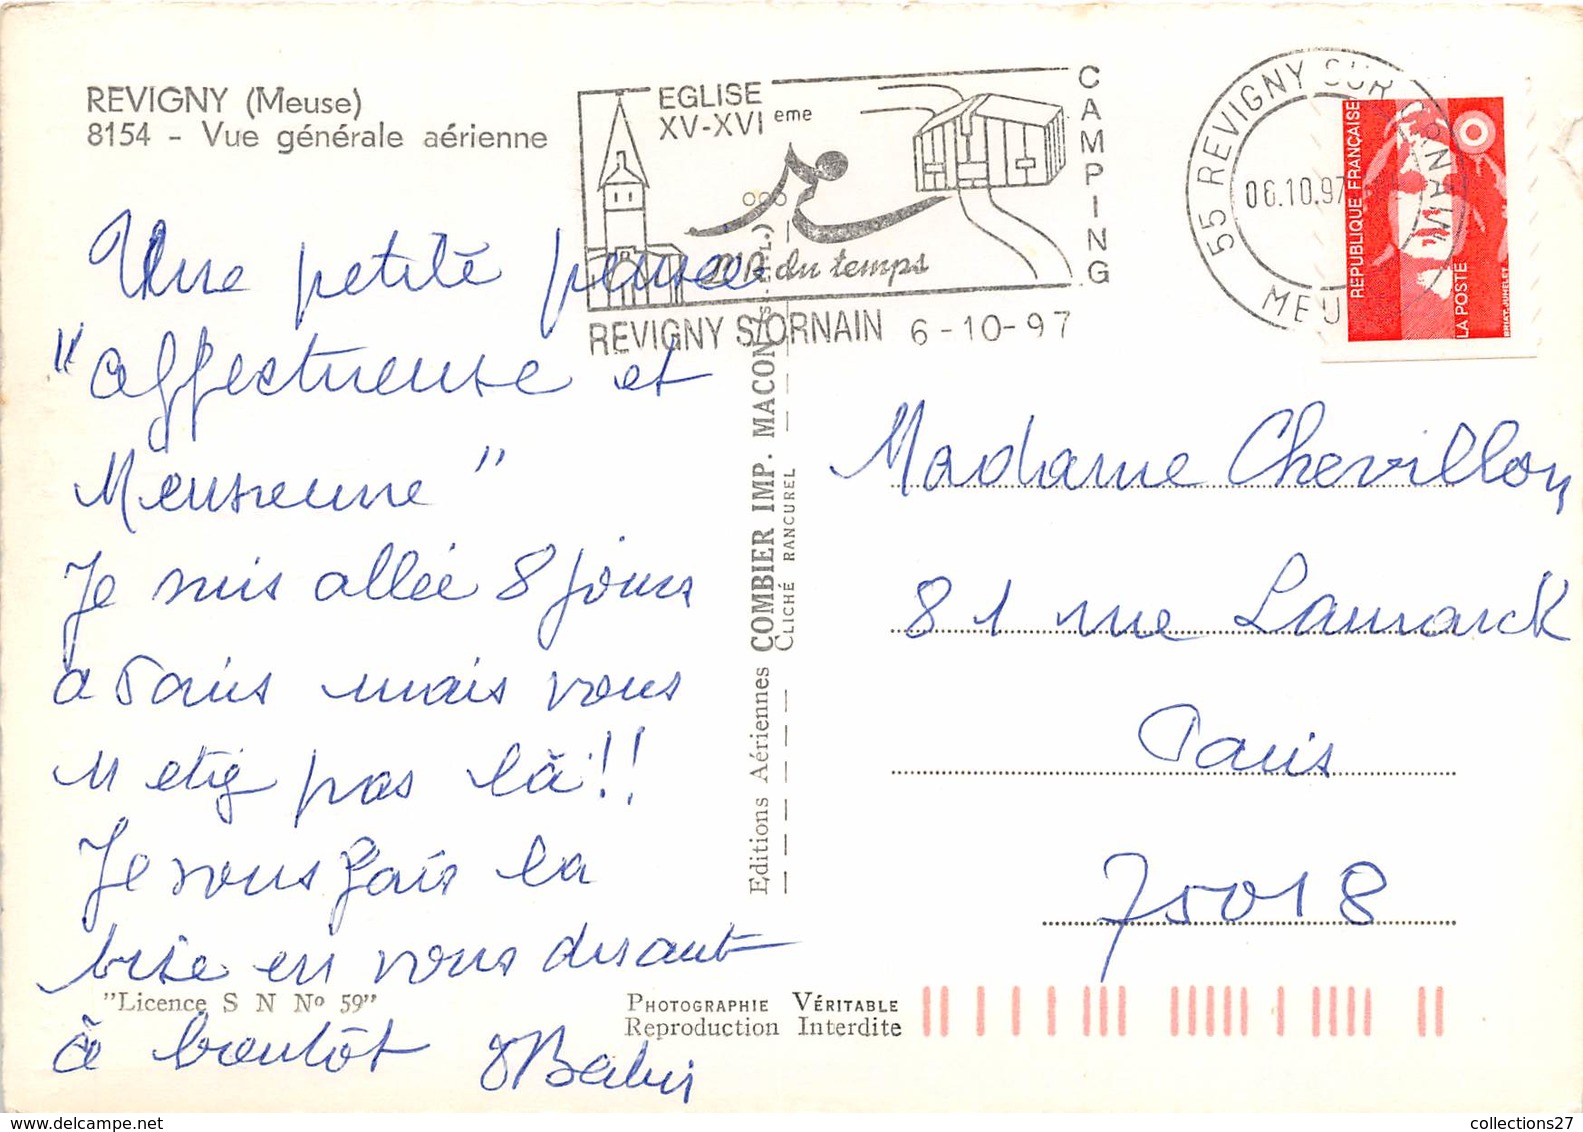 REVIGNY (Meuse)
8154 - Vue générale aérienne
EGLISE
XV-XVIeme
CAMPING
du temps
REVIGNY S/ORNAIN 6-10-97
55 REVIGNY SUR ORNAIN
06.10.97
MEUSE
REPUBLIQUE FRANÇAISE
LA POSTE
BRIAT-JUMELET
Une petite pensée
"affectueuse et
Meusienne"
Je suis allée 8 jours
a Paris mais vous
n etiez pas là!!
Je vous fais la
bise en vous disant
à bientôt
Editions Aériennes COMBIER IMP. MACON (S.-et-L.)
CLICHÉ RANCUREL
Madame Chevillon
81 rue Lamarck
Paris
75018
"Licence S N Nº 59"
PHOTOGRAPHIE VÉRITABLE
Reproduction Interdite
collections27